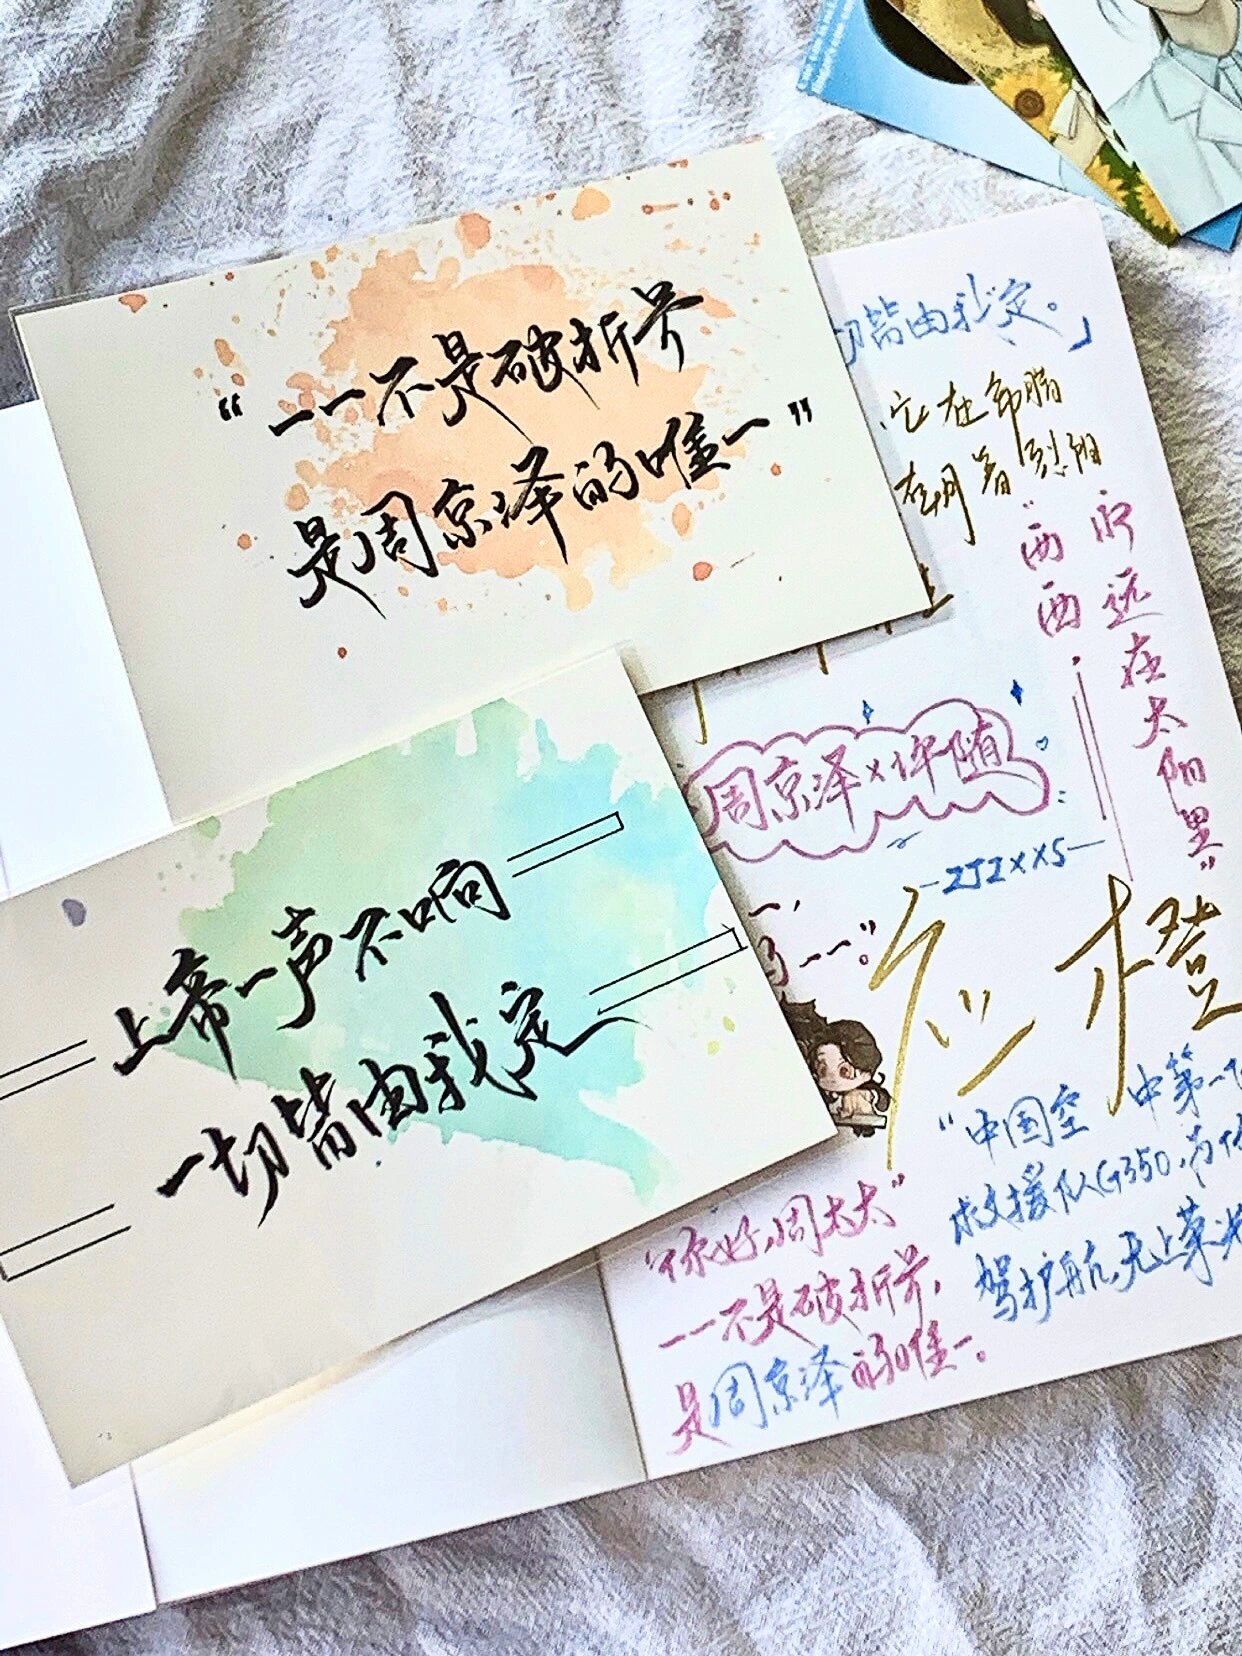 “一一不是破折号
是周京泽的唯一”
上帝一声不响
一切皆由我定
切皆由我定。」
它在希腊
在朝着烈阳
“西西
永远在太阳里”
周京泽×许随
—ZJZ××S—
应橙
“中国空 中第一
求支援队G350,为
驾护航,无上荣光
“你好,周太太”
一一不是破折号,
是周京泽的唯一。